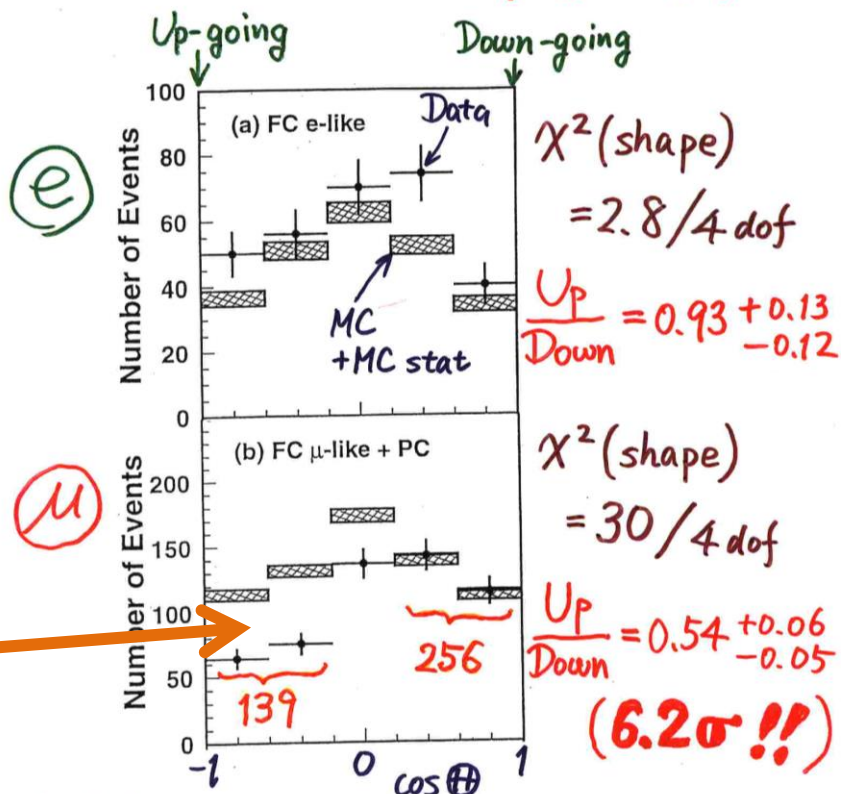 Up-going
Down-going
100
80
60
40
20
0
Number of Events
(a) FC e-like
Data
MC
+MC stat
e
χ² (shape)
= 2.8/4 dof
Up
Down
= 0.93 +0.13
-0.12
200
150
100
50
0
Number of Events
(b) FC μ-like + PC
μ
139
256
χ² (shape)
= 30/4 dof
Up
Down
= 0.54 +0.06
-0.05
(6.2σ !!)
-1
0
1
cos Θ